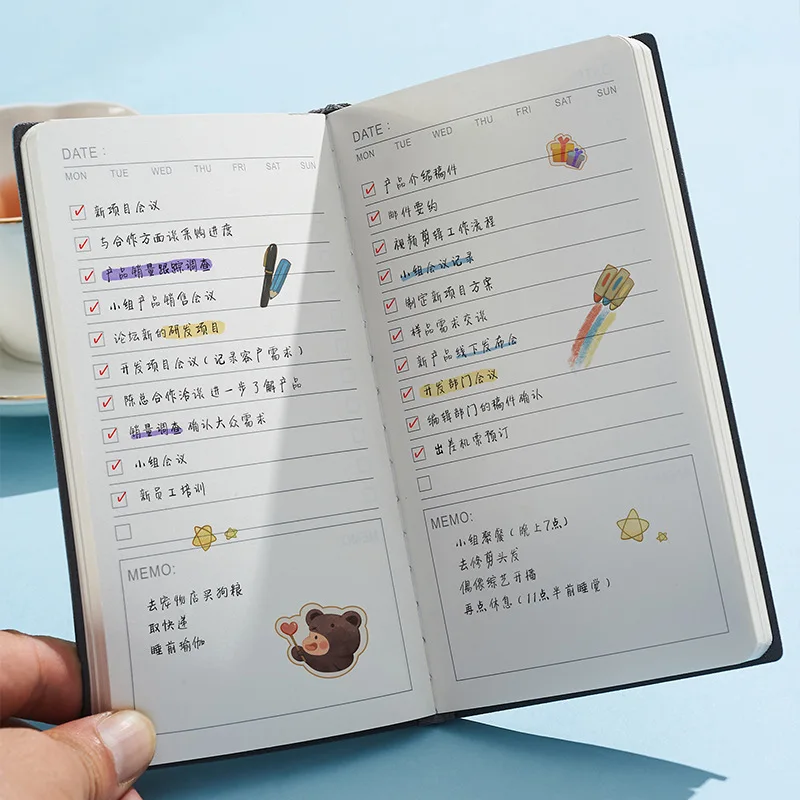 DATE :
MON TUE WED THU FRI SAT SUN
新项目会议
与合作方面谈采购进度
产品销量跟踪调查
小组产品销售会议
论坛新的研发项目
开发项目会议(记录客户需求)
陈总合作洽谈进一步了解产品
销量调查确认大众需求
小组会议
新员工培训
MEMO:
去宠物店买狗粮
取快递
睡前瑜伽
DATE :
MON TUE WED THU FRI SAT SUN
产品介绍稿件
邮件要约
视频剪辑工作流程
小组会议记录
制定新项目方案
样品需求交谈
新产品线下发布会
开发部门会议
编辑部门的稿件确认
出差机票预订
MEMO:
小组聚餐(晚上7点)
去修剪头发
偶像综艺开播
再点休息(11点半前睡觉)